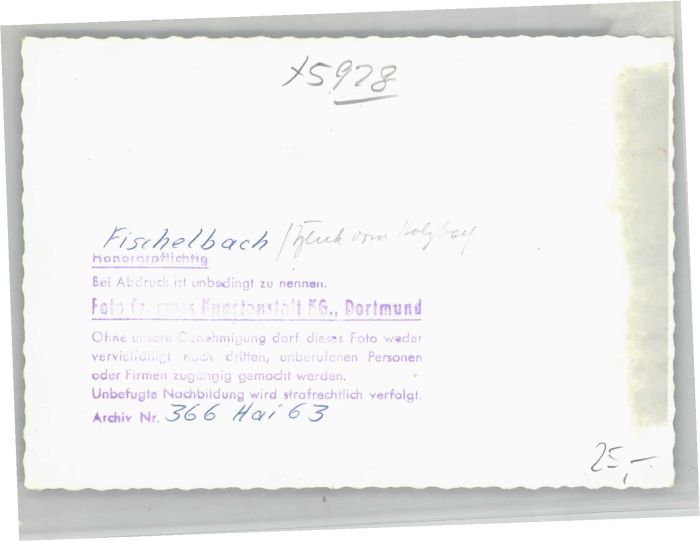 x5928
Fischelbach / Blick vom
Honorarpflichtig
Bei Abdruck ist unbedingt zu nennen.
Foto Cramers Kunstanstalt KG., Dortmund
Ohne unsere Genehmigung darf dieses Foto weder
vervielfältigt noch dritten, unberufenen Personen
oder Firmen zugängig gemacht werden.
Unbefugte Nachbildung wird strafrechtlich verfolgt.
Archiv Nr. 366 Hai 63
25,-